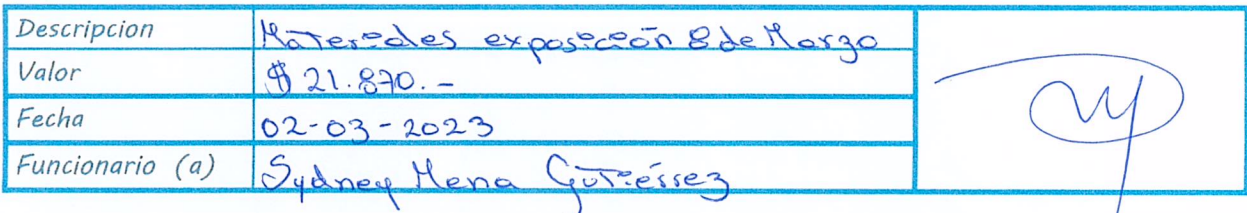 Descripcion Materiales exposición 8 de Marzo
Valor $ 21.870.-
Fecha 02-03-2023
Funcionario (a) Sydney Mena Gutiérrez